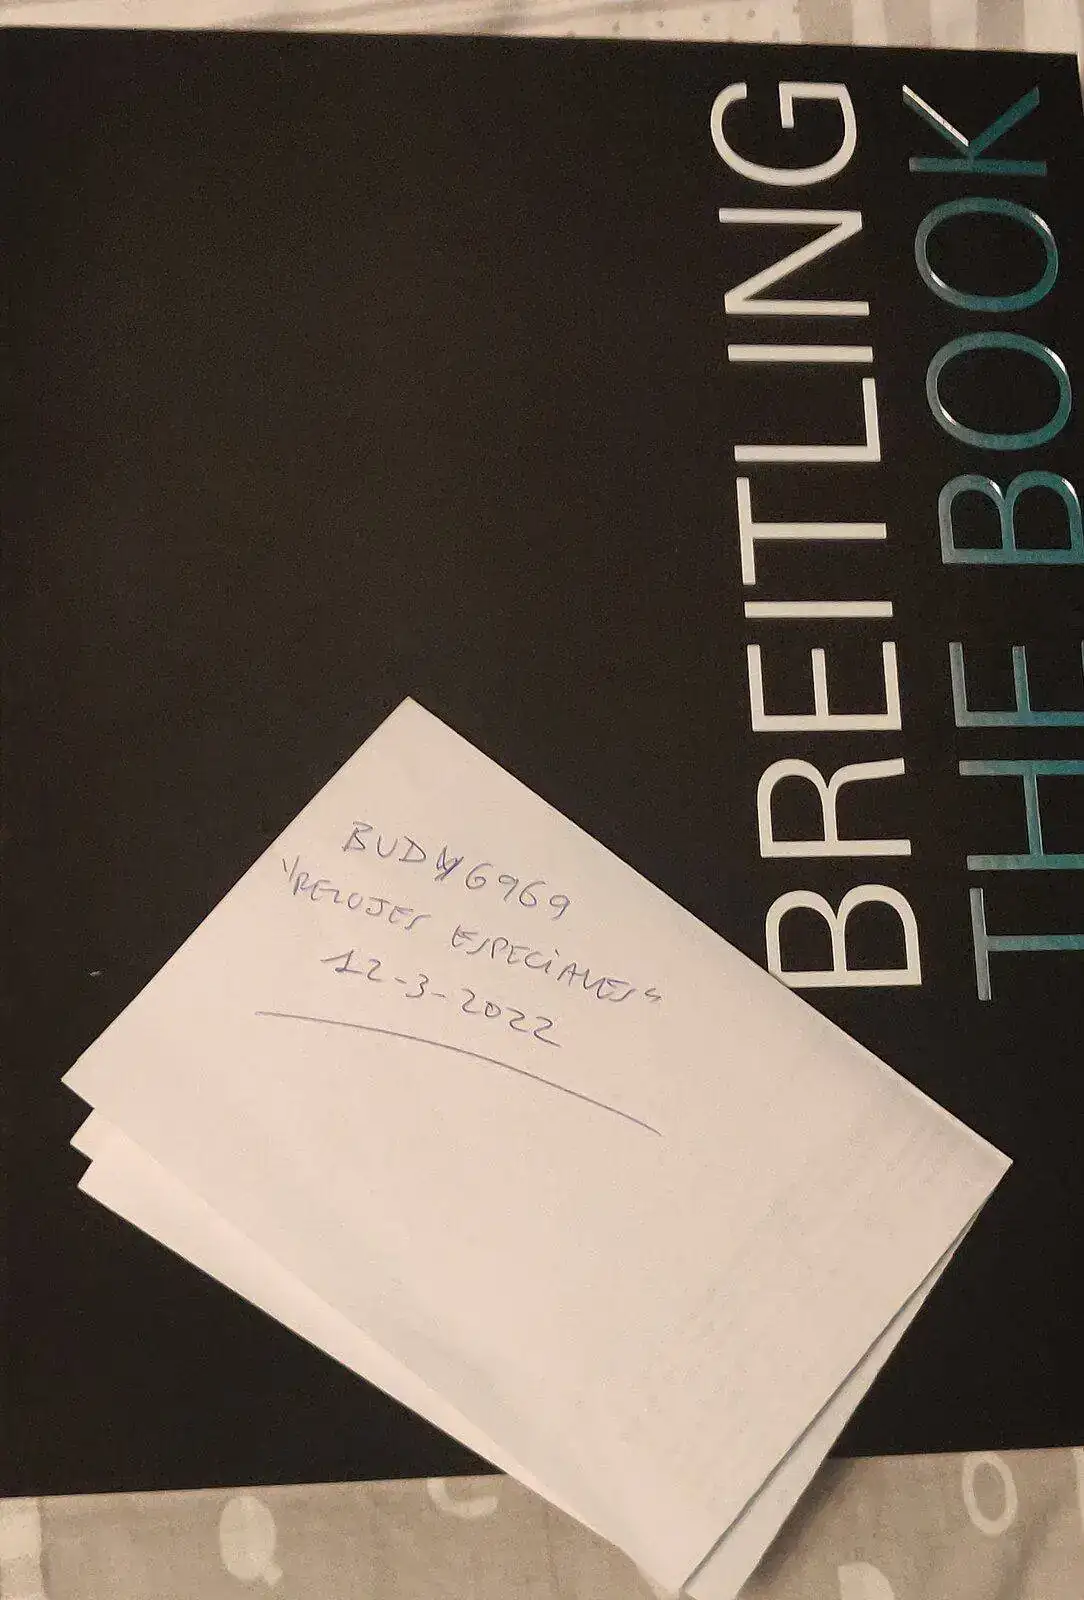 BREITLING
THE BOOK
BUDY6969
"RELOJES ESPECIALES"
12-3-2022